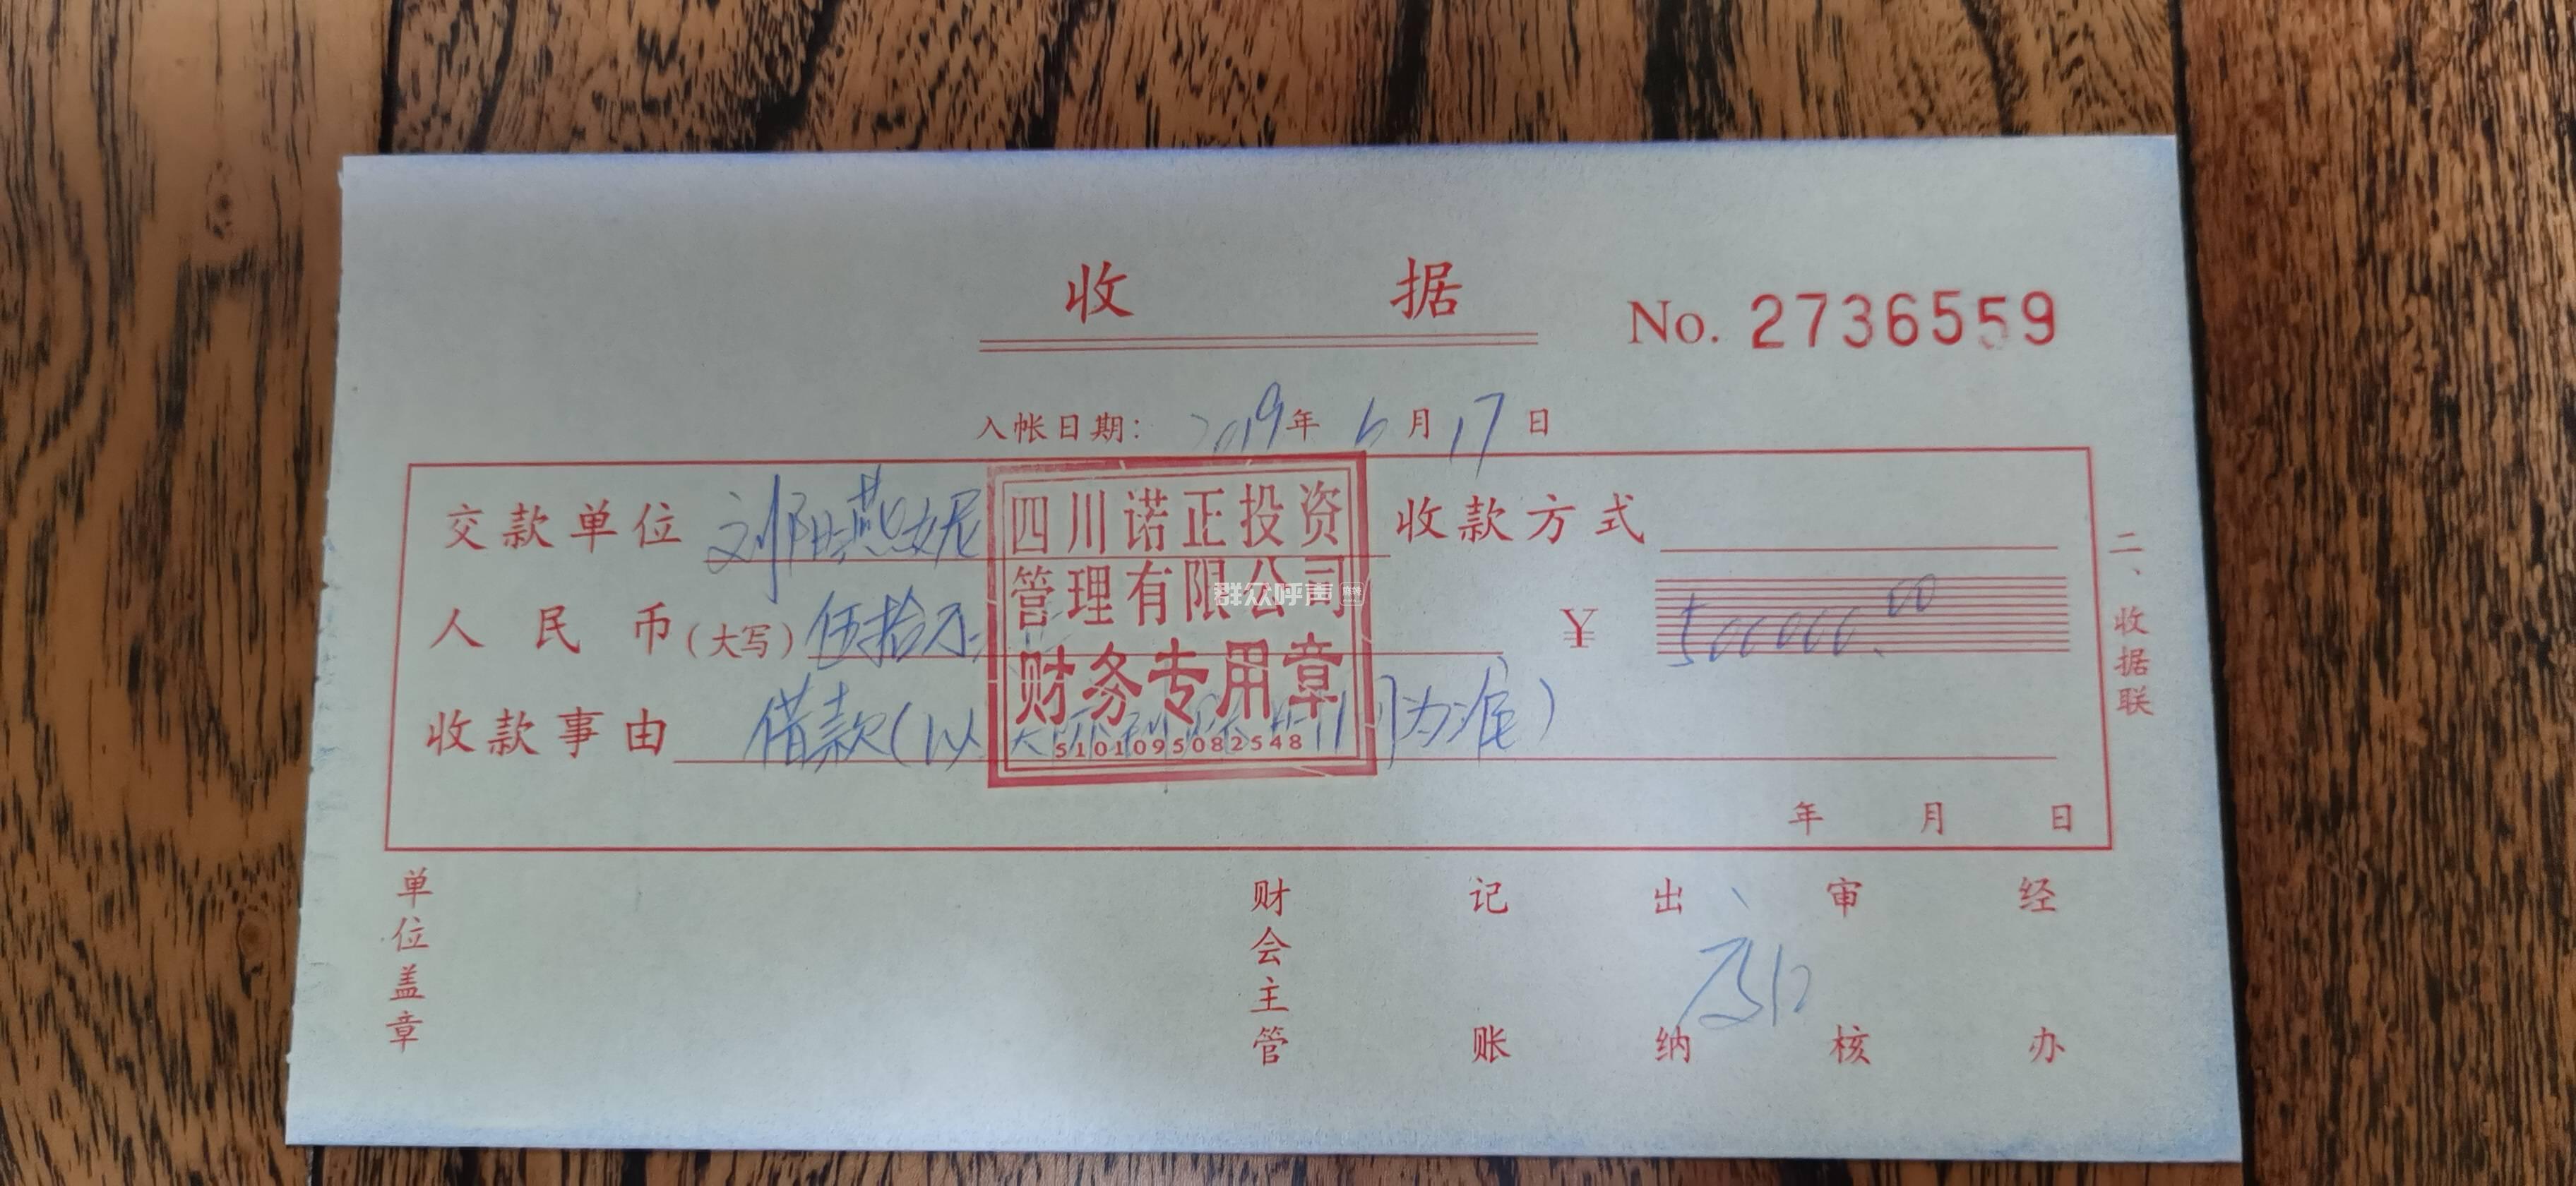 收 据
No. 2736559
入帐日期： 2019 年 6 月 17 日
交款单位 刘阳燕妮 收款方式
人民币(大写) 伍拾万 ¥ 500000.00
收款事由 借款(以实际到账时间为准)
年 月 日
四川诺正投资
管理有限公司
财务专用章
5101095082548
群众呼声
二、收据联
单位盖章 财会主管 记账 出纳 审核 经办